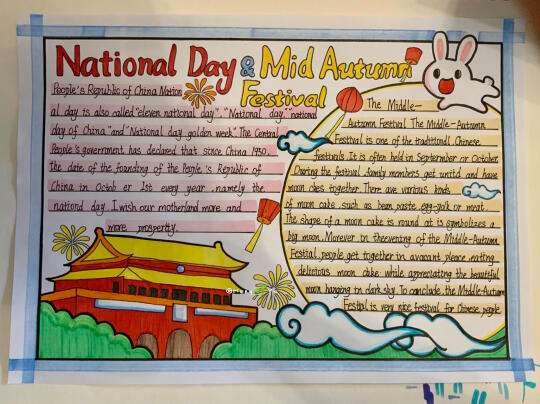 National Day & Mid Autumn
Festival
People's Republic of China Nation
al day is also called "eleven national day", "National day" "national
day of China" and "National day golden week" The Central
People's government has declared that since China 1950,
The date of the founding of the People 's Republic of
China in Octob er 1st every year , namely the
nationd day. I wish our motherland more and
more prosperity.
The Middle-
Autumn Festival The Middle-Autumn
Festival is one of the traditional Chinese
festivals It is often held in Septermber or October
During the festival family members get united and have
moon ckes together There are various kinds
of moon cake such as bean paste egg-yolk or meat
The shape of a moon cake is round at is symbolizes a
big moon Morever in theevering of the Middle-Autumn
Festival people get together in avacant pleace eating
delicrous moon cake while appreciating the beautiful
moon hanging in dark sky To conclude the Middle-Autumn
Festival is very nice festival for Chinese people